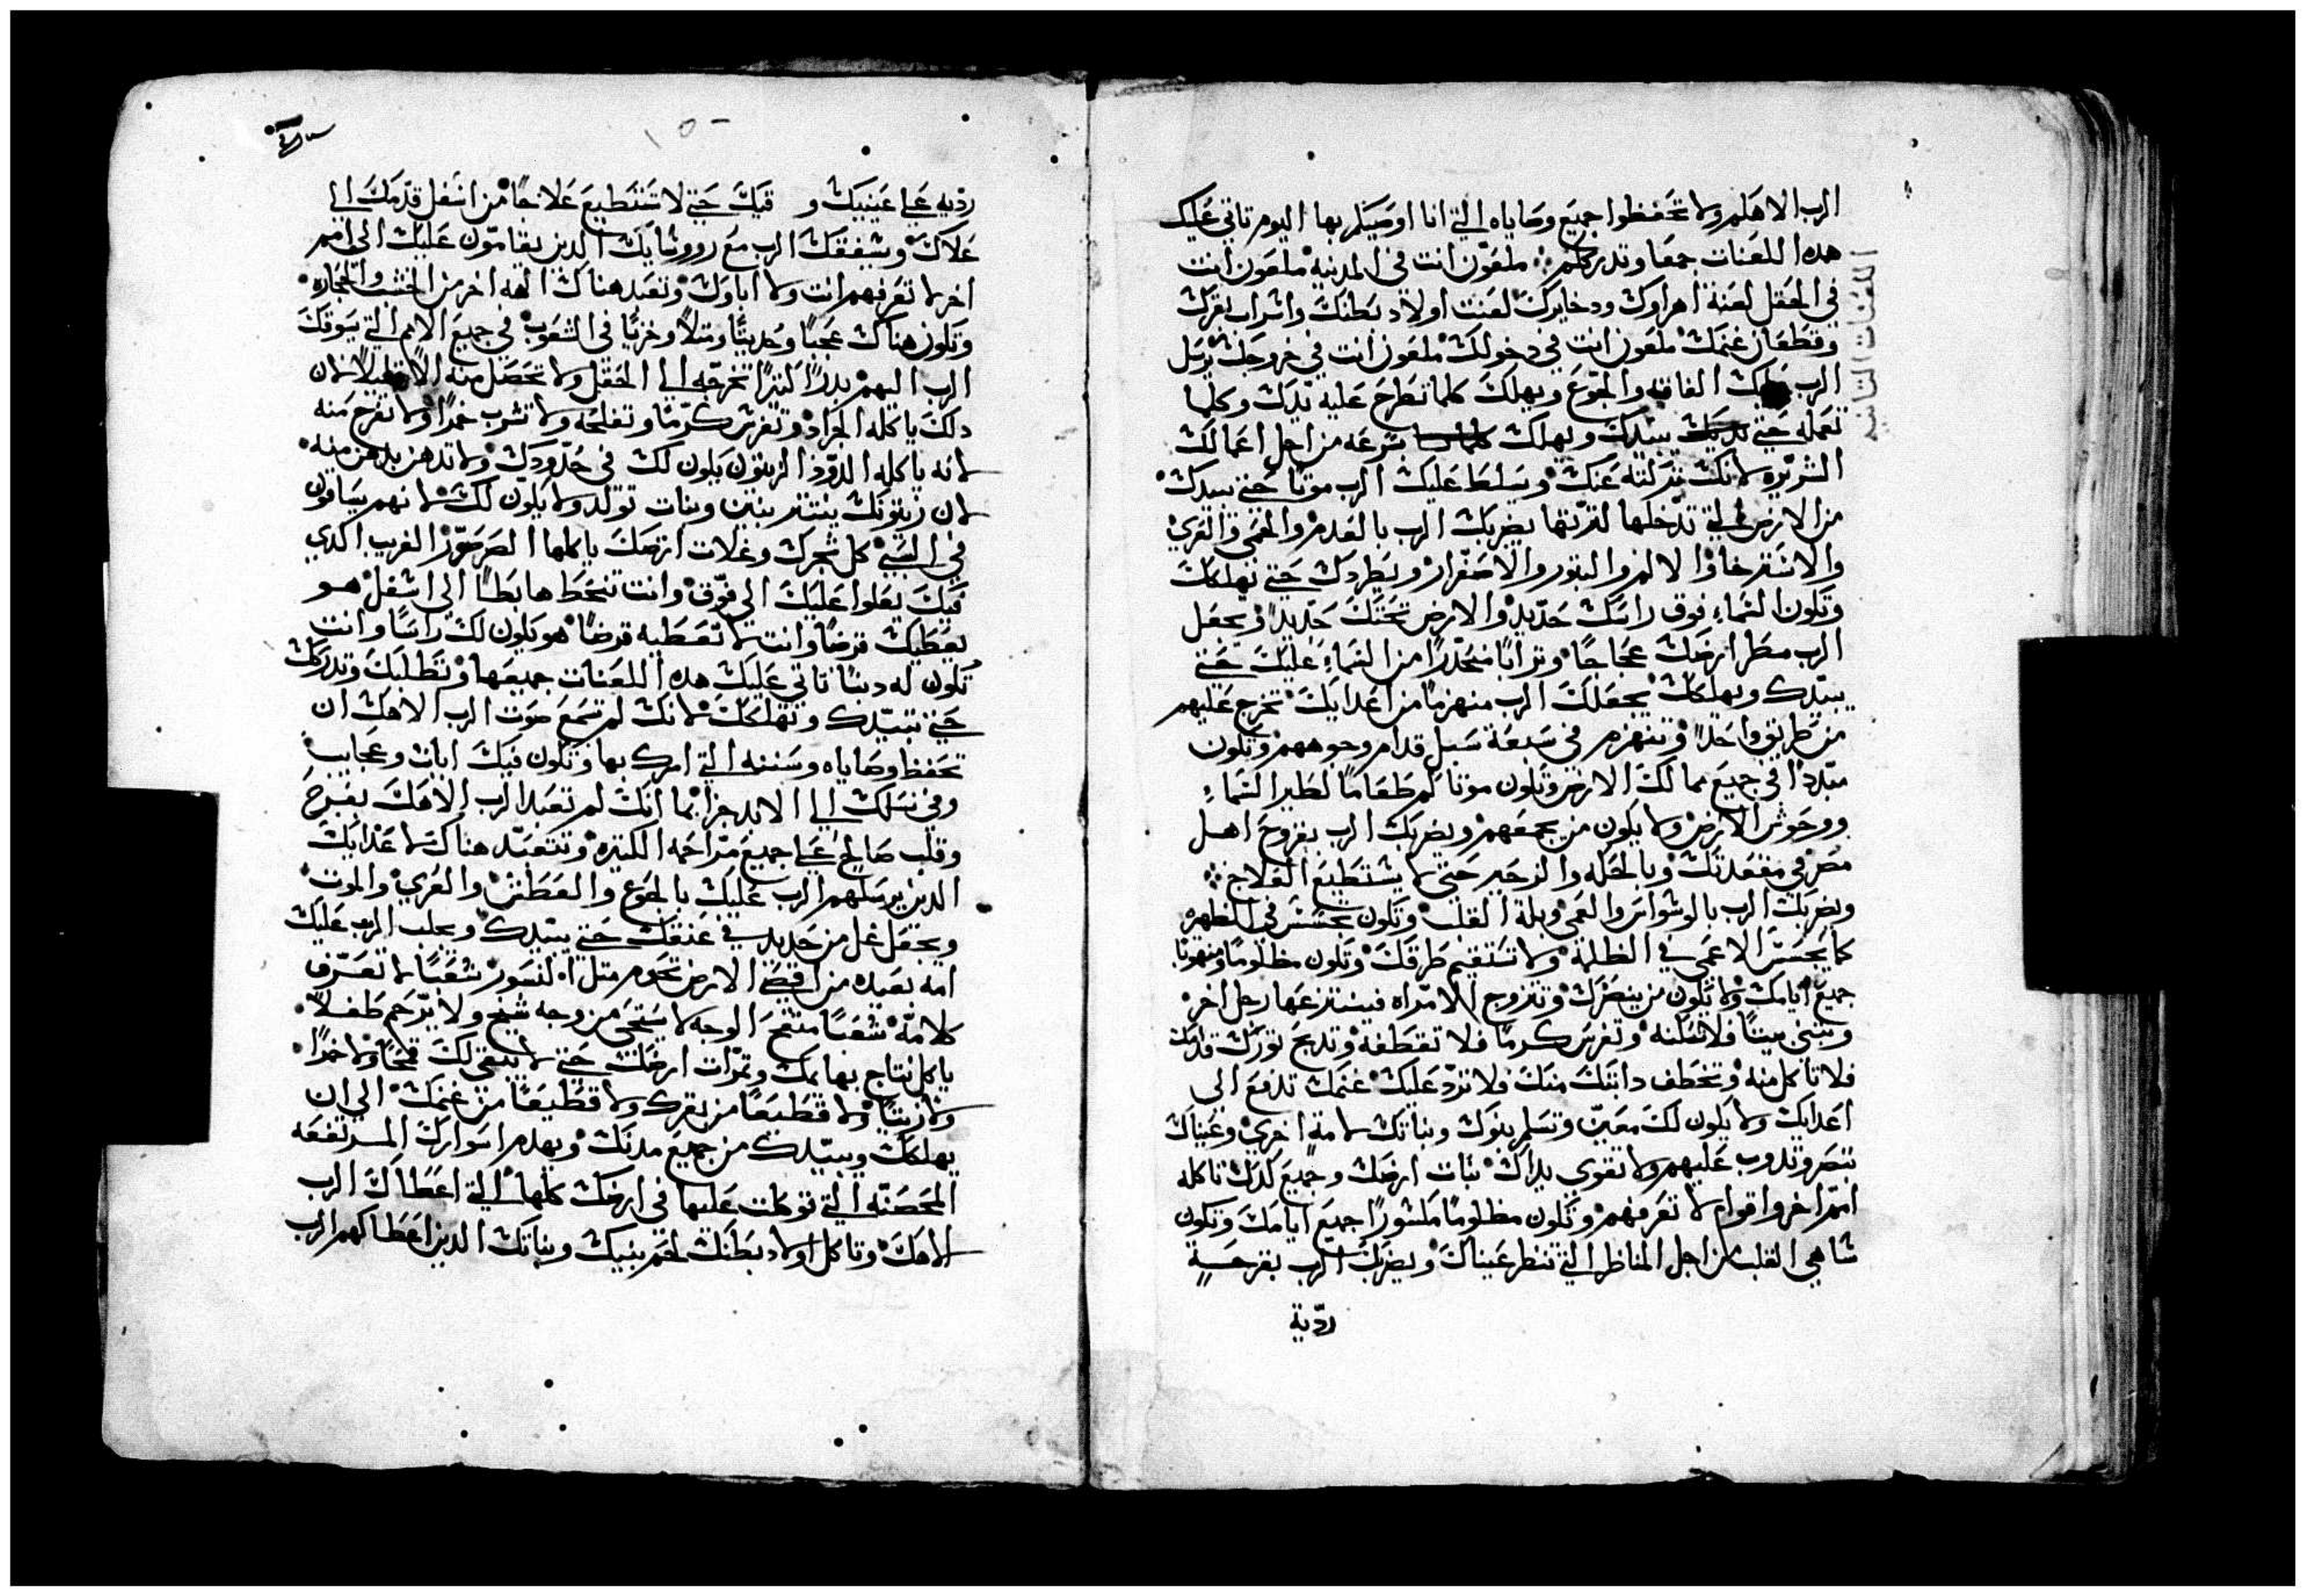 الرب الاهكم ولا تحفظوا جميع وصاياه التي انا اوصيكم بها اليوم تاتي عليك
هده اللعنات جمعا وتدرككم ملعون انت في المدينه ملعون انت
في الحقل لعنة اهراوك ودخايرك لعنت اولاد بطنك واثراب بقرك
وقطعان غنمك ملعون انت في دخولك ملعون انت في خروجك يرسل
الرب عليك الفاقه والجوع ويهلك كلما تطرح عليه يدك وكلما
تعمله حتي يبيدك ويهلك بسرعه من اجل اعمالك
الشريره لانك تركته عنك ويسلط عليك الرب موتا حتي يبيدك
من الارض التي تدخلها لترتها يضربك الرب بالعدم والحمي والعري
والا والبتور والاصفرار ويطردك حتي تهلكك
وتكون السماء فوق راسك حديد والارض تحتك حديد ويجعل
الرب مطر ارضك عجاجا وترابا منحدرا من السماء عليك حتي
يبيدك ويهلكك يجعلك الرب منهزما من اعدايك تخرج عليهم
من طريق واحد وتنهزم في سبعة سبل قدام وجوههم وتكون
مبددا في جميع ممالك الارض وتكون موتاكم طعاما لطير السماء
ووحوش الارض ولا يكون من يجمعهم ويضربك الرب بقروح اهل
مصر في مقعدتك وبالحكه والزحير حتي لا يستطيع العلاج
ويضربك الرب بالوسواس والعمي وبلة القلب وتكون تجسس في الظهر
كما يجسس الاعمي في الظلمة ولا تستقيم طرقك وتكون مظلوما ومنهوبا
جميع ايامك ولا يكون من ينصرك وتتزوج الامراه فينتزعها رجل اخر
وتبني بيتا فلا تسكنه وتغرس كرما فلا تقطفه وتدبح تورك قدامك
فلا تاكل منه وتخطف دابتك منك فلا ترد عليك غنمك تدفع الي
اعدايك ولا يكون لك معين وتسلم بنوك وبناتك لامة اخري وعيناك
تبصر وتدوب عليهم ولا تقوي يداك نبات ارضك وجميع كدك تاكله
امم اخر واقوام لا تعرفهم وتكون مظلوما مكسورا جميع ايامك وتكون
شاهي القلب من اجل المناظر التي تنظر عيناك ويضربك الرب بقرحة
رديه
اللعنات التانيه
رديه علي عينيك و قيك حتي لا تستطيع علاجا من اسفل قدمك الي
علاك ويشفقك الرب مع رووسايك الدين يقامون عليك الي امم
اخر لا تعرفهم انت ولا اباوك وتعبد هناك الهه اخر من الخشب والحجاره
وتكون هناك عجبا وحديثا ومتلا وخزيا في الشعوب في جميع الامم التي يسوقك
الرب اليهم بدرا كتيرا تخرجه الي الحقل ولا تحصل منه الا قليلا لان
دلك ياكله الجراد وتغرس كرما وتفلحه ولا تشرب خمرا ولا تفرح منه
لانه ياكله الدود الزيتون يكون لك في حدودك ولا تدهن بدهن منه
لان زيتونك ينتتر بنين وبنات تولد ولا يكون لك لانهم يساقون
في السبي كل شجرك وغلات ارضك ياكلها الصرصور الغريب الدي
فيك يعلوا عليك الي فوق وانت تنحط هابطا الي اسفل هو
يعطيك قرضا وانت لا تعطيه قرضا هو يكون لك راسا وانت
تكون له دنبا تاتي عليك هده اللعنات جميعها وتطلبك وتدركك
حتي تبيدك وتهلكك لانك لم تسمع صوت الرب الاهك ان
تحفظ وصاياه وسننه التي امرك بها وتكون فيك ايات وعجايب
وفي نسلك الي الابد جزا بما انك لم تعبد الرب الاهك بفرح
وقلب صالح علي جميع مراحمه الكتيره وتتعبد هناك لاعدايك
الدين يرسلهم الرب عليك بالجوع والعطش والعري والموت
ويجعل غل من حديد في عنقك حتي يبيدك ويجلب الرب عليك
امه بعيده من اقصي الارض تحوم متل النسور شعبا لا تعرف
كلامه شعبا متقح الوجه لا يستحي من وجه شيخ ولا يرحم طفلا
ياكل نتاج بهايمك وتمرات ارضك حتي لا يبقي لك قمحا ولا خمرا
ولا زيتا ولا قطيعا من بقرك ولا قطيعا من غنمك الي ان
يهلكك ويبيدك من جميع مدنك ويهدم اسوارك المرتفعه
المحصنه التي توكلت عليها في ارضك كلها التي اعطاك الرب
الاهك وتاكل اولاد بطنك لحم بنيك وبناتك الدين اعطاكهم الرب